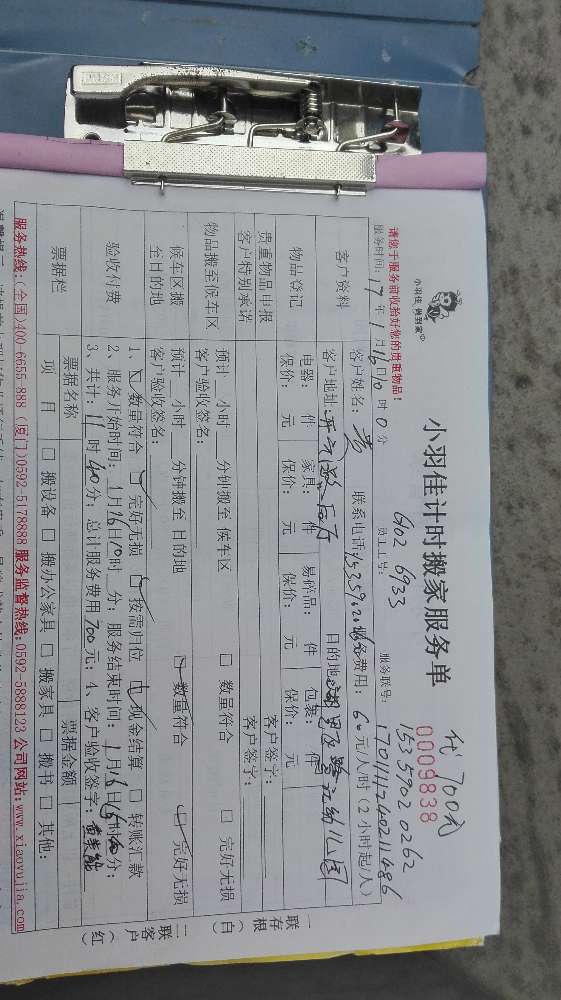 小羽佳 搬到家
小羽佳计时搬家服务单
代 700元
0009838
15359020262
请您于服务前收拾好您的贵重物品！
服务时间：17年1月16日10时0分
员工工号：
6902 6933
服务联号：
客户资料
客户姓名：
联系电话：
费用：60元/人/时（2小时起/人）
客户地址：
目的地：
物品登记
电器： 件 家具： 件 易碎品： 件 包装： 件
保价： 元 保价： 元 保价： 元 保价： 元
贵重物品申报
客户签字：
客户特别承诺
客户签字：
物品搬至候车区
预计__小时__分钟搬至 候车区 □ 数量符合 □ 完好无损
客户验收签名：
候车区搬至目的地
预计__小时__分钟搬至 目的地 □ 数量符合 □ 完好无损
客户验收签名：
验收付费
1、□ 数量符合 □ 完好无损 □ 按需归位 □ 现金结算 □ 转账汇款
2、服务开始时间：1月16日10时__分；服务结束时间：1月16日
3、共计：11时40分；总计服务费用700元；4、客户验收签字：
票据栏
票据名称 票据金额
项 目 □ 搬设备 □ 搬办公家具 □ 搬家具 □ 搬书 □ 其他：
服务热线：(全国)400-6655-888 (厦门)0592-5178888 服务监督热线：0592-5888123 公司网站：www.xiaoyujia.com
一联存根（白）
二联客户（红